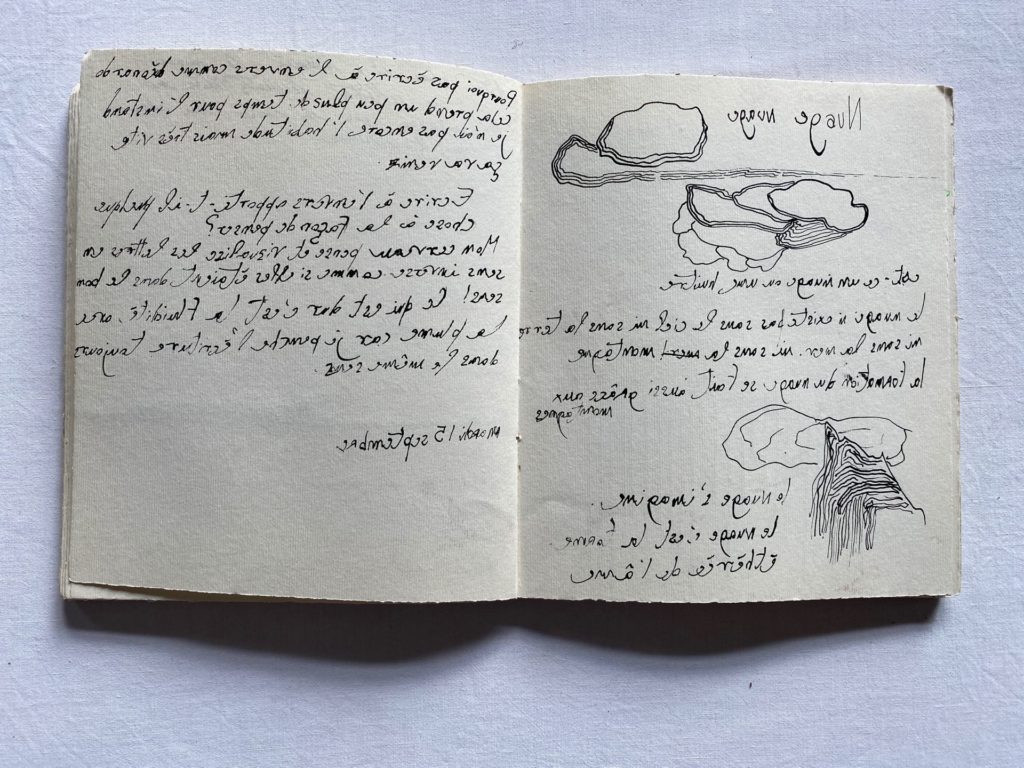 Pourquoi pas écrire à l'envers comme Léonardo
cela prend un peu plus de temps pour l'instand
je n'ai pas encore l'habitude mais très vite
ça va venir.
Ecrire à l'envers apporte-t-il quelque
chose à la façon de penser?
Mon cerveau pense et visualise les lettres en
sens inverse comme si elles étaient dans le bon
sens! Ce qui est dur c'est la fluidité avec
la plume car je penche l'écriture toujours
dans le même sens.
mardi 15 septembre
Nuage nuage
est-ce un nuage ou une huitre
le nuage n'existe pas sans le ciel ni sans la terre
ni sans la mer. ni sans la montagne
la formation du nuage se fait aussi grâce aux
montagnes
le nuage s'imagine.
le nuage c'est la forme
éthérée de l'âme